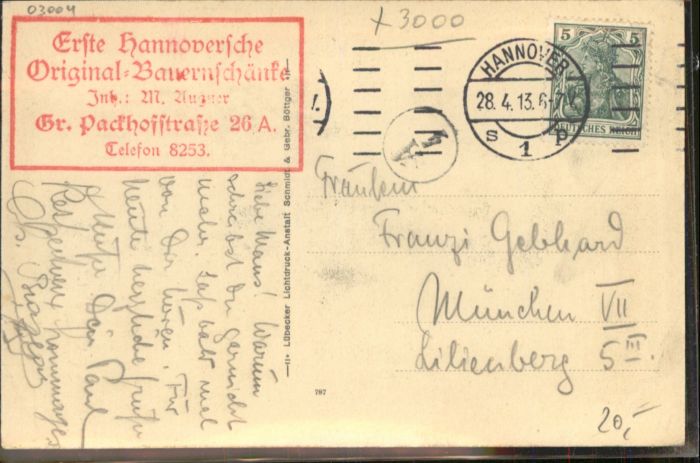 03004
x 3000
Erste Hannoversche
Original-Bauernschänke
Inh.: M. Auzner
Gr. Packhofstraße 26 A.
Telefon 8253.
HANNOVER
28. 4. 13. 6-7 V.
S 1 p
5 5
DEUTSCHES REICH
Fräulein
Franzi Gebhard
München VII
Lilienberg 5 III.
Liebe Maus! Warum
schreibst Du garnicht
mehr. Laß halt mal
von Dir hören. Für
heute herzliche Grüße
Dein Paul
Lübecker Lichtdruck-Anstalt Schmidt & Gebr. Böttger
787
20,-